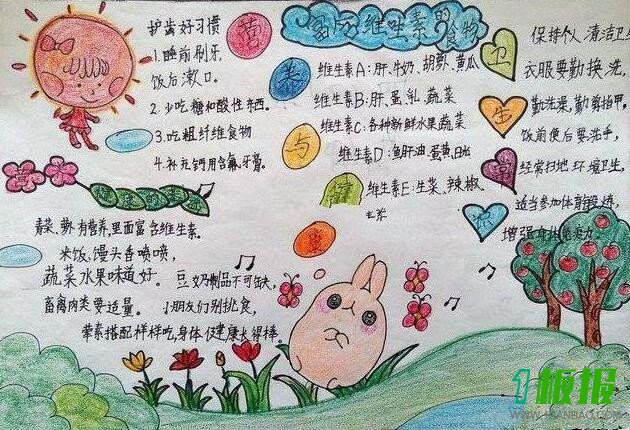 护齿好习惯
1.睡前刷牙
饭后漱口。
2.少吃糖和酸性东西。
3.吃粗纤维食物
4.补充钙用含氟牙膏。
营
养
与
健
康
富含维生素的食物
维生素A:肝、牛奶、胡萝、黄瓜
维生素B:肝、蛋、乳、蔬菜
维生素C:各种新鲜水果蔬菜
维生素D:鱼肝油、蛋黄、日光
维生素E:生菜、辣椒、
卫
生
常
保持个人清洁卫生
衣服要勤换洗,
勤洗澡,勤剪指甲。
饭前便后要洗手,
经常扫地环境卫生,
适当参加体育锻炼,
增强身体免疫力
营
健康
青菜、萝卜有营养,里面富含维生素。
米饭、馒头香喷喷,
蔬菜水果味道好。豆奶制品不可缺,
畜禽肉类要适量。小朋友们别挑食,
荤素搭配样样吃,身体健康长得棒。
1板报
WWW.1BANBAO.COM